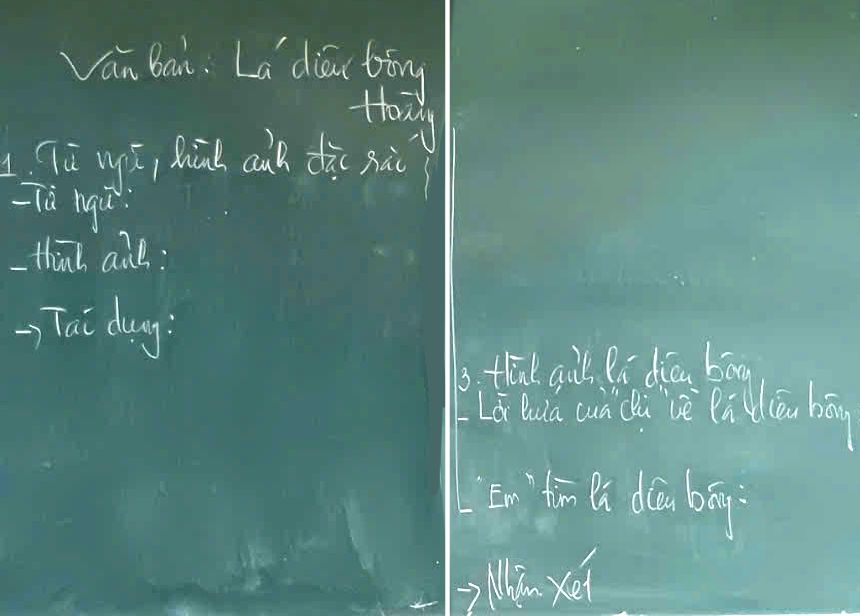 Văn bản: Lá diêu bông
Hoàng
1. Từ ngữ, hình ảnh đặc sắc
- Từ ngữ:
- Hình ảnh:
→ Tác dụng:
3. Hình ảnh lá diêu bông
- Lời hứa của "chị" về lá diêu bông
- "Em" tìm lá diêu bông:
→ Nhận xét